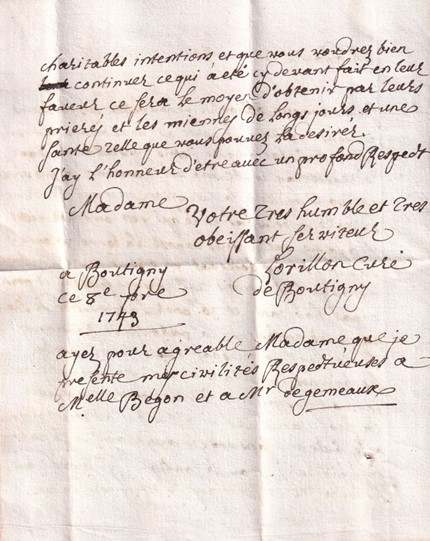 charitables intentions et que vous voudrez bien
continuer ce qui a été cy devant fait en leur
faveur ce sera le moyen d'obtenir par leurs
prieres et les miennes de longs jours et une
santé telle que vous pouvez la desirer.
Jay l'honneur d'etre avec un profond Respect
Madame
Votre Tres humble et Tres
obeissant serviteur
Lorillon Curé
de Boutigny
a Boutigny
ce 8e
1743
ayez pour agreable Madame que je
presente mes civilités Respectueuses a
Melle Begon et a Mr degemeaux